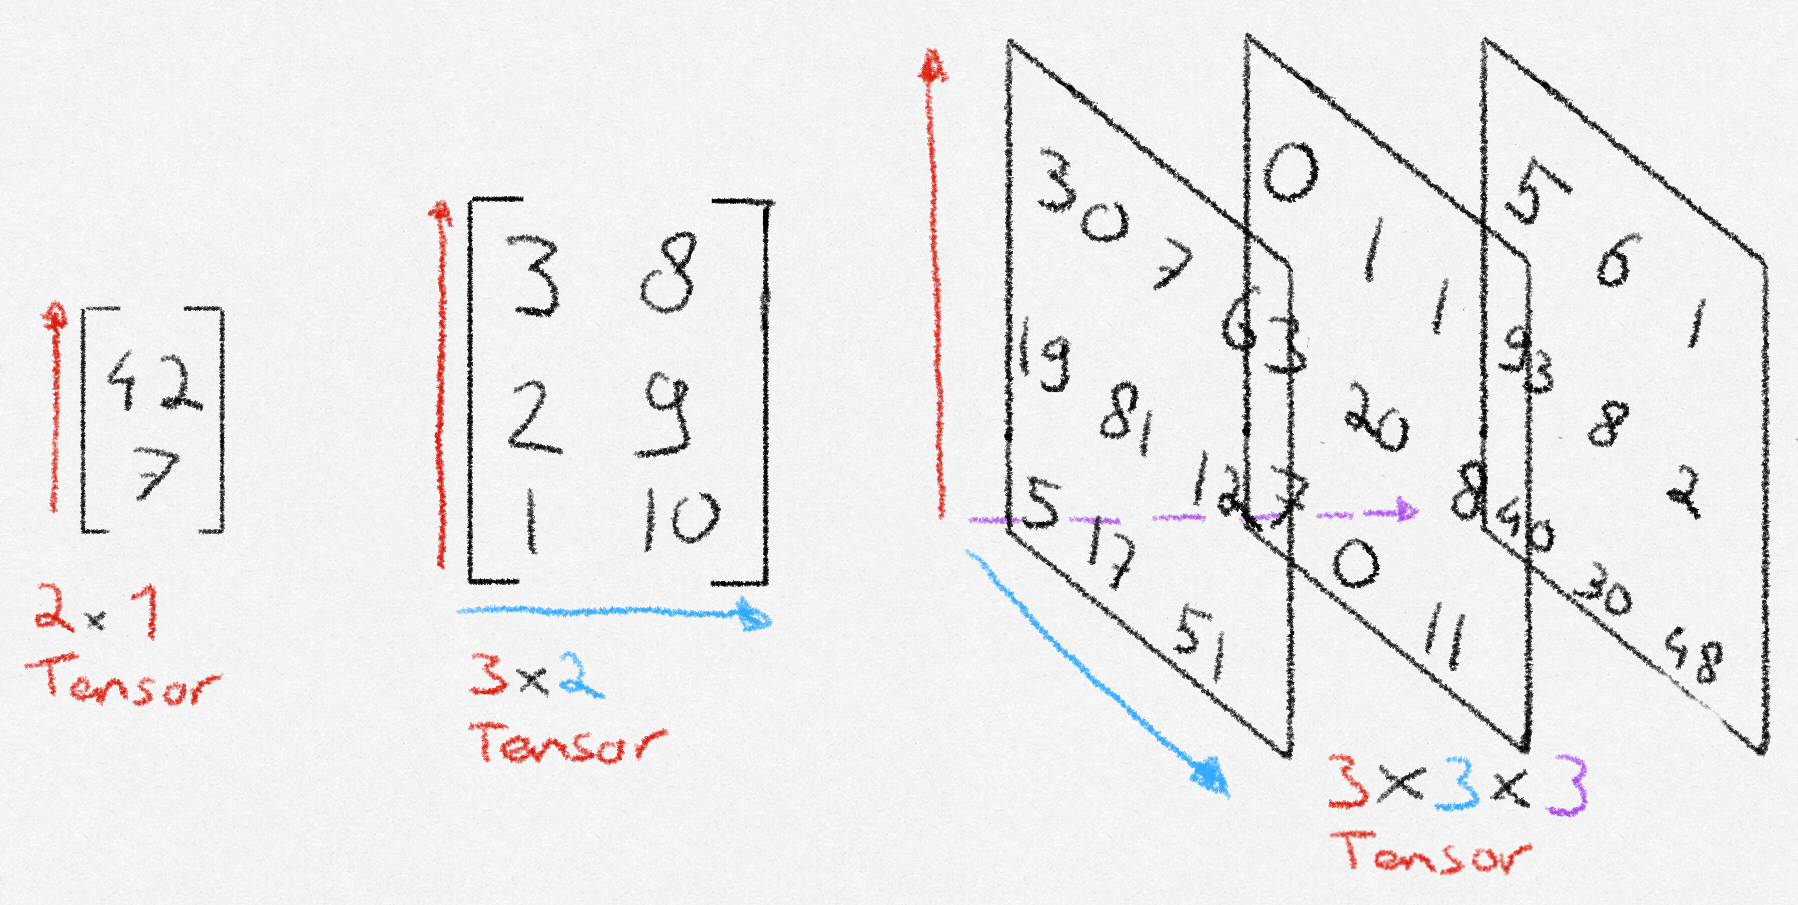 42
7
2 x 1
Tensor
3 8
2 9
1 10
3 x 2
Tensor
30 7 6
19 81 12
5 17 51
0 1 19
3 20 8
7 0 11
5 6 1
3 8 2
40 30 48
3 x 3 x 3
Tensor